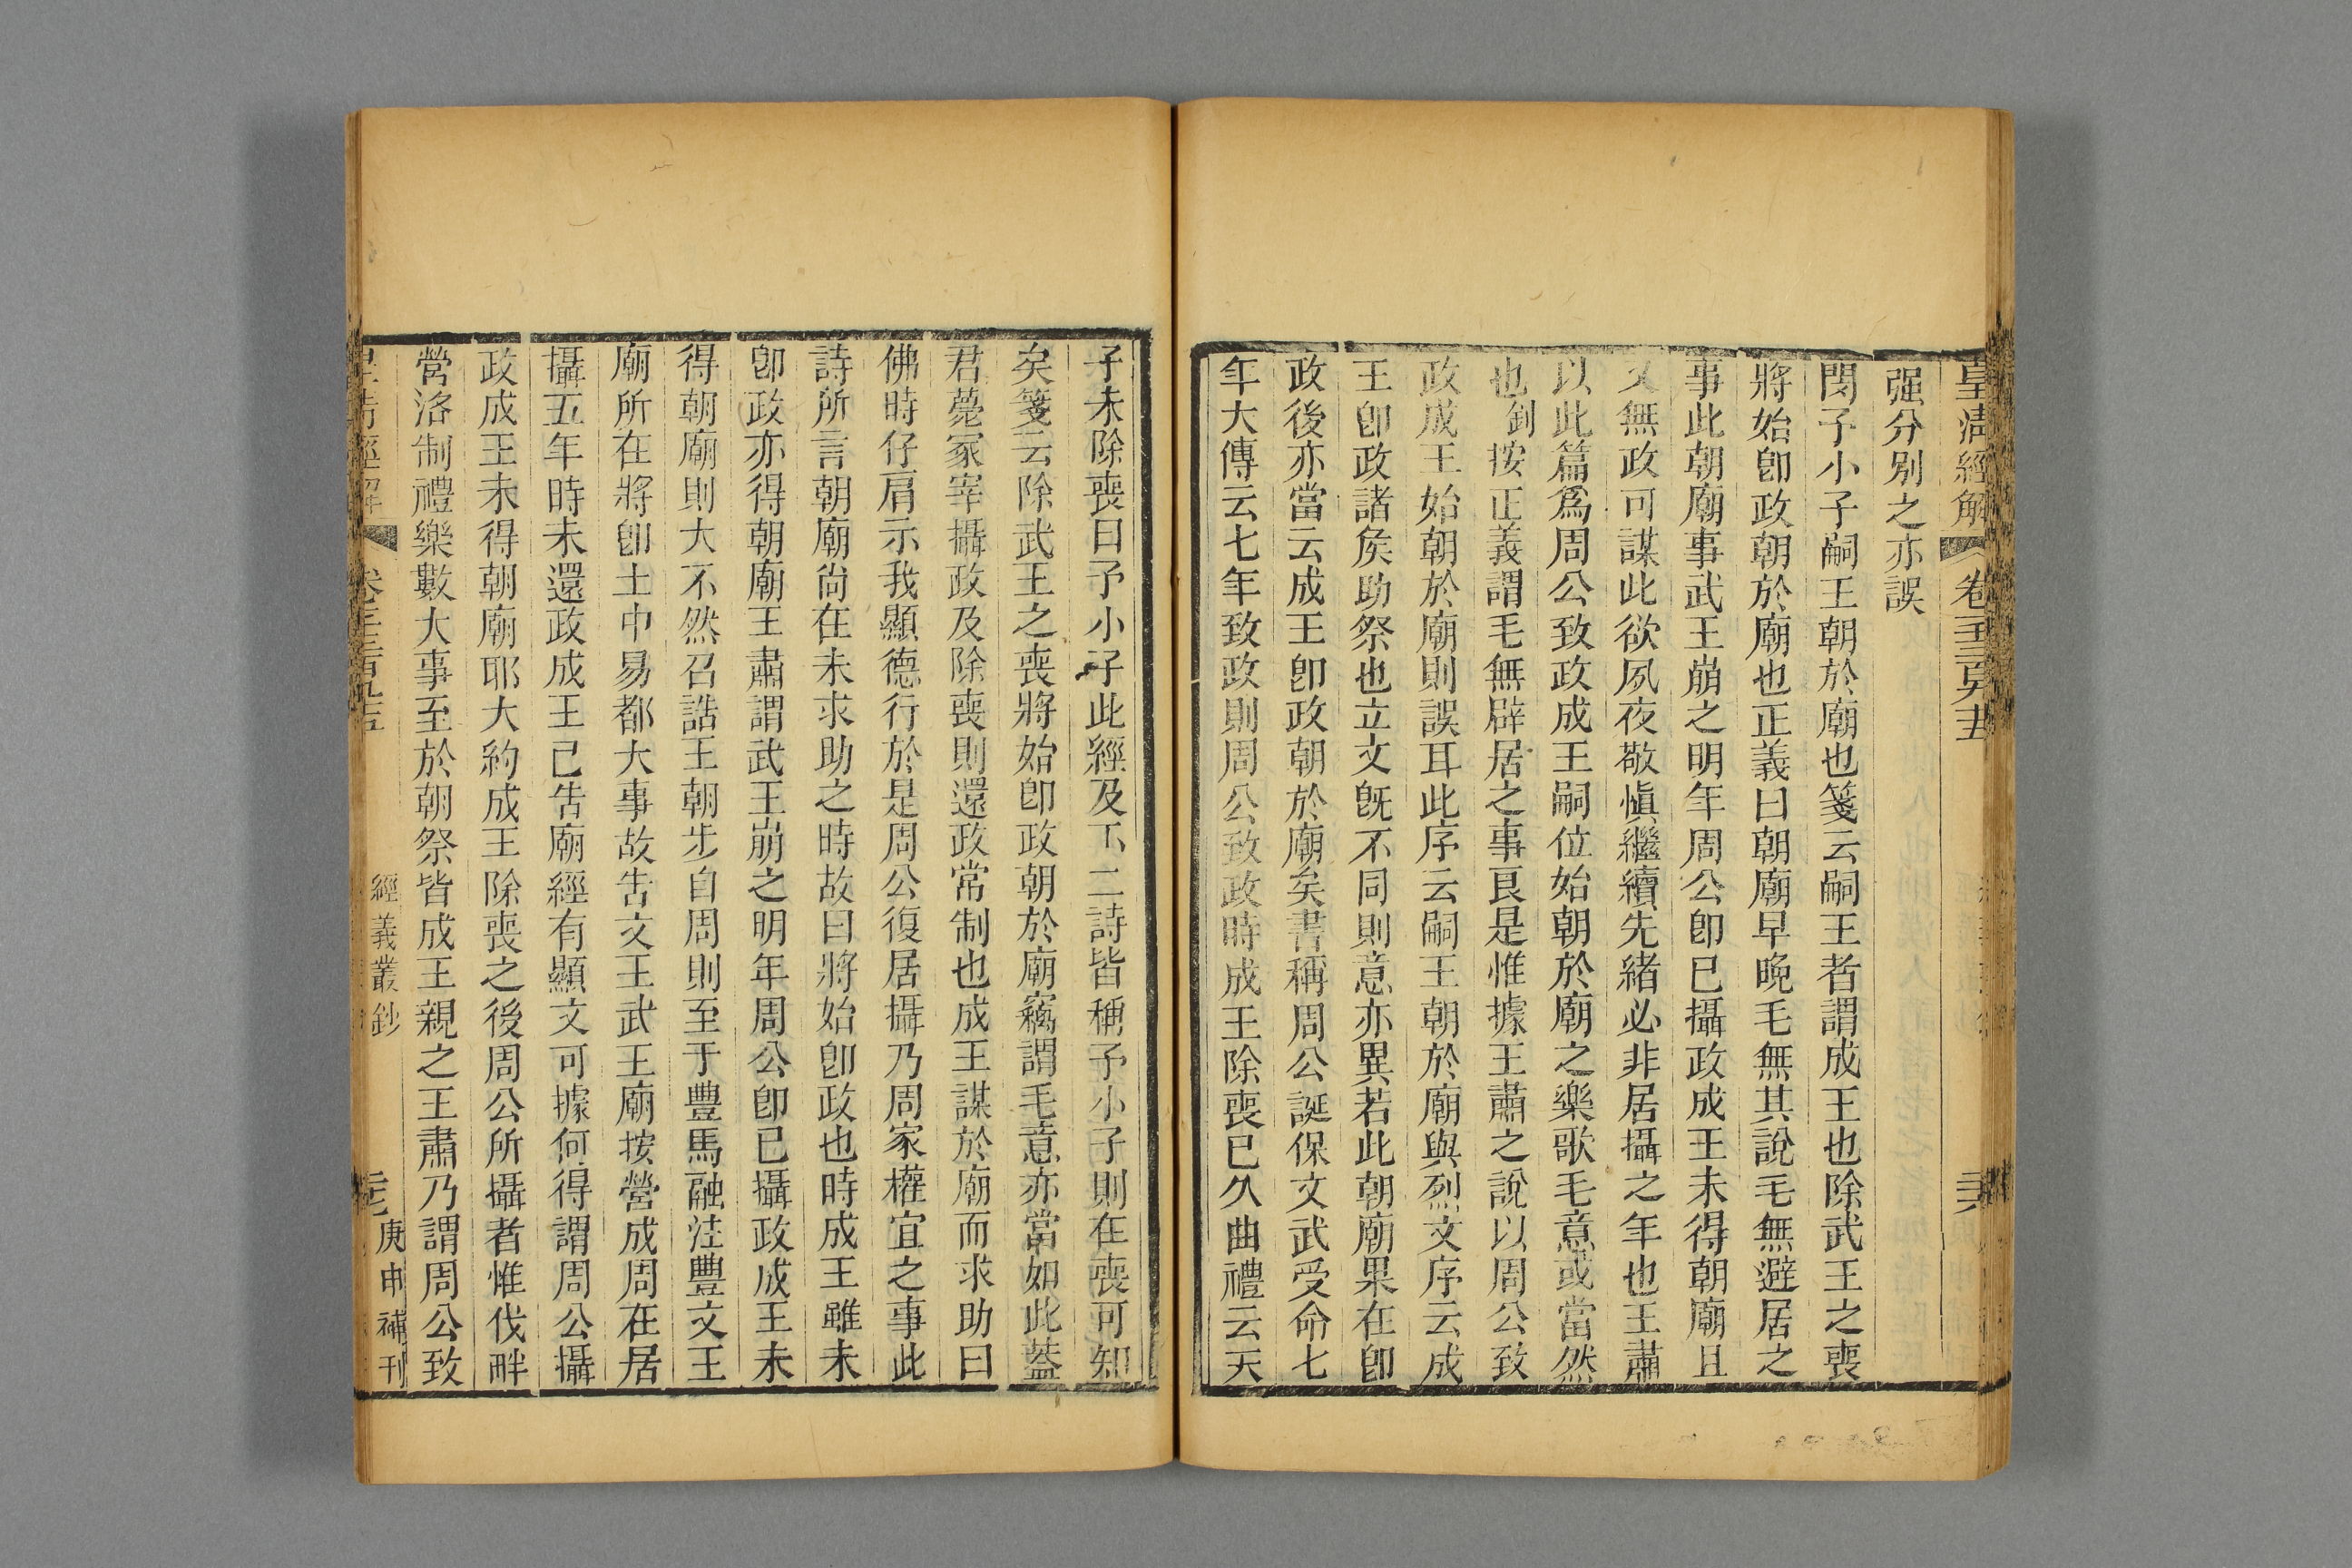 皇清經解
强分别之亦誤
閔子小子嗣王朝於廟也箋云嗣王者謂成王也除武王之喪
將始卽政朝於廟也正義曰朝廟早晚毛無其說毛無避居之
事此朝廟事武王崩之明年周公卽已攝政成王未得朝廟且
又無政可謀此欲夙夜敬愼繼續先緒必非居攝之年也王肅
以此篇爲周公致政成王嗣位始朝於廟之樂歌毛意或當然
也釗按正義謂毛無辟居之事良是惟據王肅之說以周公致
政成王始朝於廟則誤耳此序云嗣王朝於廟與烈文序云成
王卽政諸矦助祭也立文旣不同則意亦異若此朝廟果在卽
政後亦當云成王卽政朝於廟矣書稱周公誕保文武受命七
年大傳云七年致政則周公致政時成王除喪已久曲禮云天
子未除喪曰予小子此經及下二詩皆稱予小子則在喪可知
矣箋云除武王之喪將始卽政朝於廟竊謂毛意亦當如此蓋
君薨冢宰攝政及除喪則還政常制也成王謀於廟而求助曰
佛時仔肩示我顯德行於是周公復居攝乃周家權宜之事此
詩所言朝廟尚在未求助之時故曰將始卽政也時成王雖未
卽政亦得朝廟王肅謂武王崩之明年周公卽已攝政成王未
得朝廟則大不然召誥王朝步自周則至于豐馬融注豐文王
廟所在將卽土中易都大事故告文王武王廟按營成周在居
攝五年時未還政成王已告廟經有顯文可據何得謂周公攝
政成王未得朝廟耶大約成王除喪之後周公所攝者惟伐畔
營洛制禮樂數大事至於朝祭皆成王親之王肅乃謂周公致
皇清經解
經義叢鈔
庚申補刊